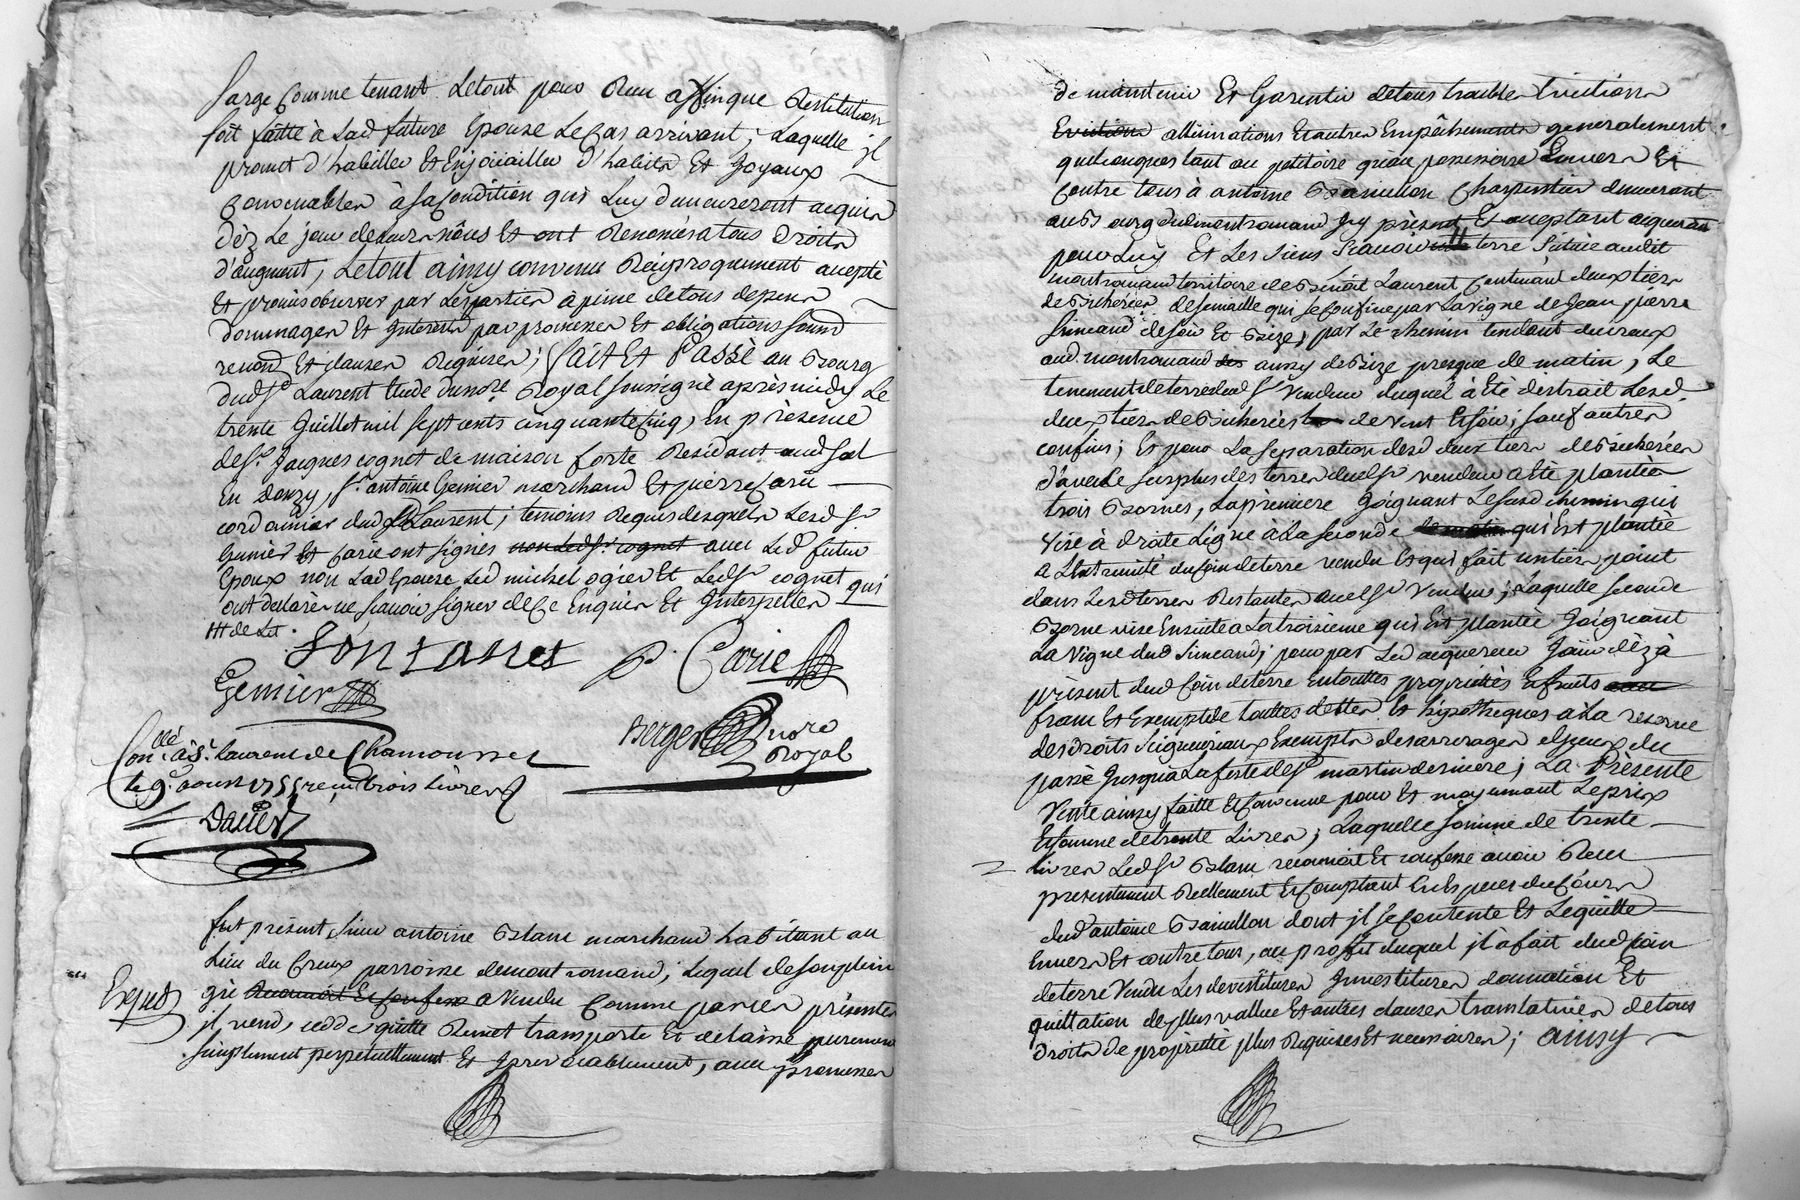 large comme tenant Letout pour Reu affinque Restitution
soit faitte à Lad future Epouse Le Cas arrivant, Laquelle jl
promet d'habiller Et Enjoüailler d'habits Et Joyaux
Convenables à sa Condition qui Luy demeureront acquis
dèz Le jour de leurs nôces Et ont Renoncés à tous Droits
d'augment, Letout ainsy convenu Réciproquement accepté
Et promis observer par Les parties à peine de tous depens
dommages Et Interests par promesses Et obligations soumis
renond Et clauses Requises; fait Et Passé au Bourg
dud St Laurent Etude du nore Royal soussigné après midy Le
trente Juillet mil sept cents cinquante Cinq, En présence
de Sr Jacques cognet de maison forte Residant aud
En donzy, Sr antoine Gemier marchand Et pierre Carie
cordonnier dud St Laurent; temoins Requis desquels Lesd Srs
Gemier Et Carie ont signés non Led Sr cognet avec Led futur
Epoux non Lad Epouse Led michel ogier Et Led Sr cognet qui
ont declarés ne sçavoir signer de Ce Enquis Et Interpellés qui
fontanes P. Carie
Gemier
Berger nore
Royal
Con.lé à St Laurent de Chamousset
le 9e aoust 1755 recu trois Livres
Dacier
fut présent sieur antoine Blanc marchand habitant au
Lieu du Creux parroisse de montromand; Lequel de son plein
Exped
gré Reconnoit Et Confesse a vendu Comme par ces présentes
jl vend, cedde, quitte Remet transporte Et delaisse purement
simplement perpetuellement Et Irrevocablement, avec promesses
de maintenir Et Garentir de tous troubles Evictions
Evictions allienations Et autres Empêchements generalement
quelconques tant au petitoire qu'au possessoire Envers Et
Contre tous à antoine Bramillon Charpentier demeurant
au Bourg dud montromand Jcy présent Et acceptant acquerant
pour Luy Et Les siens sçavoir terre située audit
montromand territoire de Benoit Laurent Contenant deux tiers
de Bicherées de semaille qui se Confine par La vigne de Jean pierre
simeand de soir Et Bize; par Le chemin tendant du creux
aud montromand aussy de Bize presque de matin, Le
tenement de terre dud Sr vendeur duquel à Eté destrait Lesd.
deux tiers de Bicherées de vent Et soir; sauf autres
confins; Et pour La Separation desd deux tiers de Bicherées
d'avec Le surplus des terres dud Sr vendeur a Eté plantés
trois Bornes, La première Joignant Le susd chemin qui
vise à droite Ligne à La seconde qui Est plantée
a L'extremité du Coin de terre vendu Et qui fait un tiers point
dans Lesd terres Restantes aud Sr Vendeur; Laquelle seconde
Borne vise Ensuitte a La troisieme qui Est plantée Joignant
La vigne dud Simeand; pour par Led acquereur Jouir dèz à
présent dud Coin de terre En touttes proprietés Et fruits
franc Et Exempt de touttes dettes Et hipotheques a La reserve
des droits Seigneuriaux Exempts des arrerages d'jceux du
passé Jusqua La feste de St martin derniere; La Présente
Vente ainsy faitte Et Convenue pour Et moyennant Le prix
Et somme de trente Livres; Laquelle somme de trente
Livres Led Sr Blanc reconnoit Et confesse avoir Reçu
presentement Reellement Et Comptant En Especes du Cours
dud antoine Bramillon dont jl se Contente Et Le quitte
Envers Et contre tous, au proffit duquel jl à fait dud Coin
de terre Vendu Les devestitures Investitures donnation Et
quittation de plus vallue Et autres clauses translatives de tous
Droits de proprieté plus Requises Et necessaires; ainsy